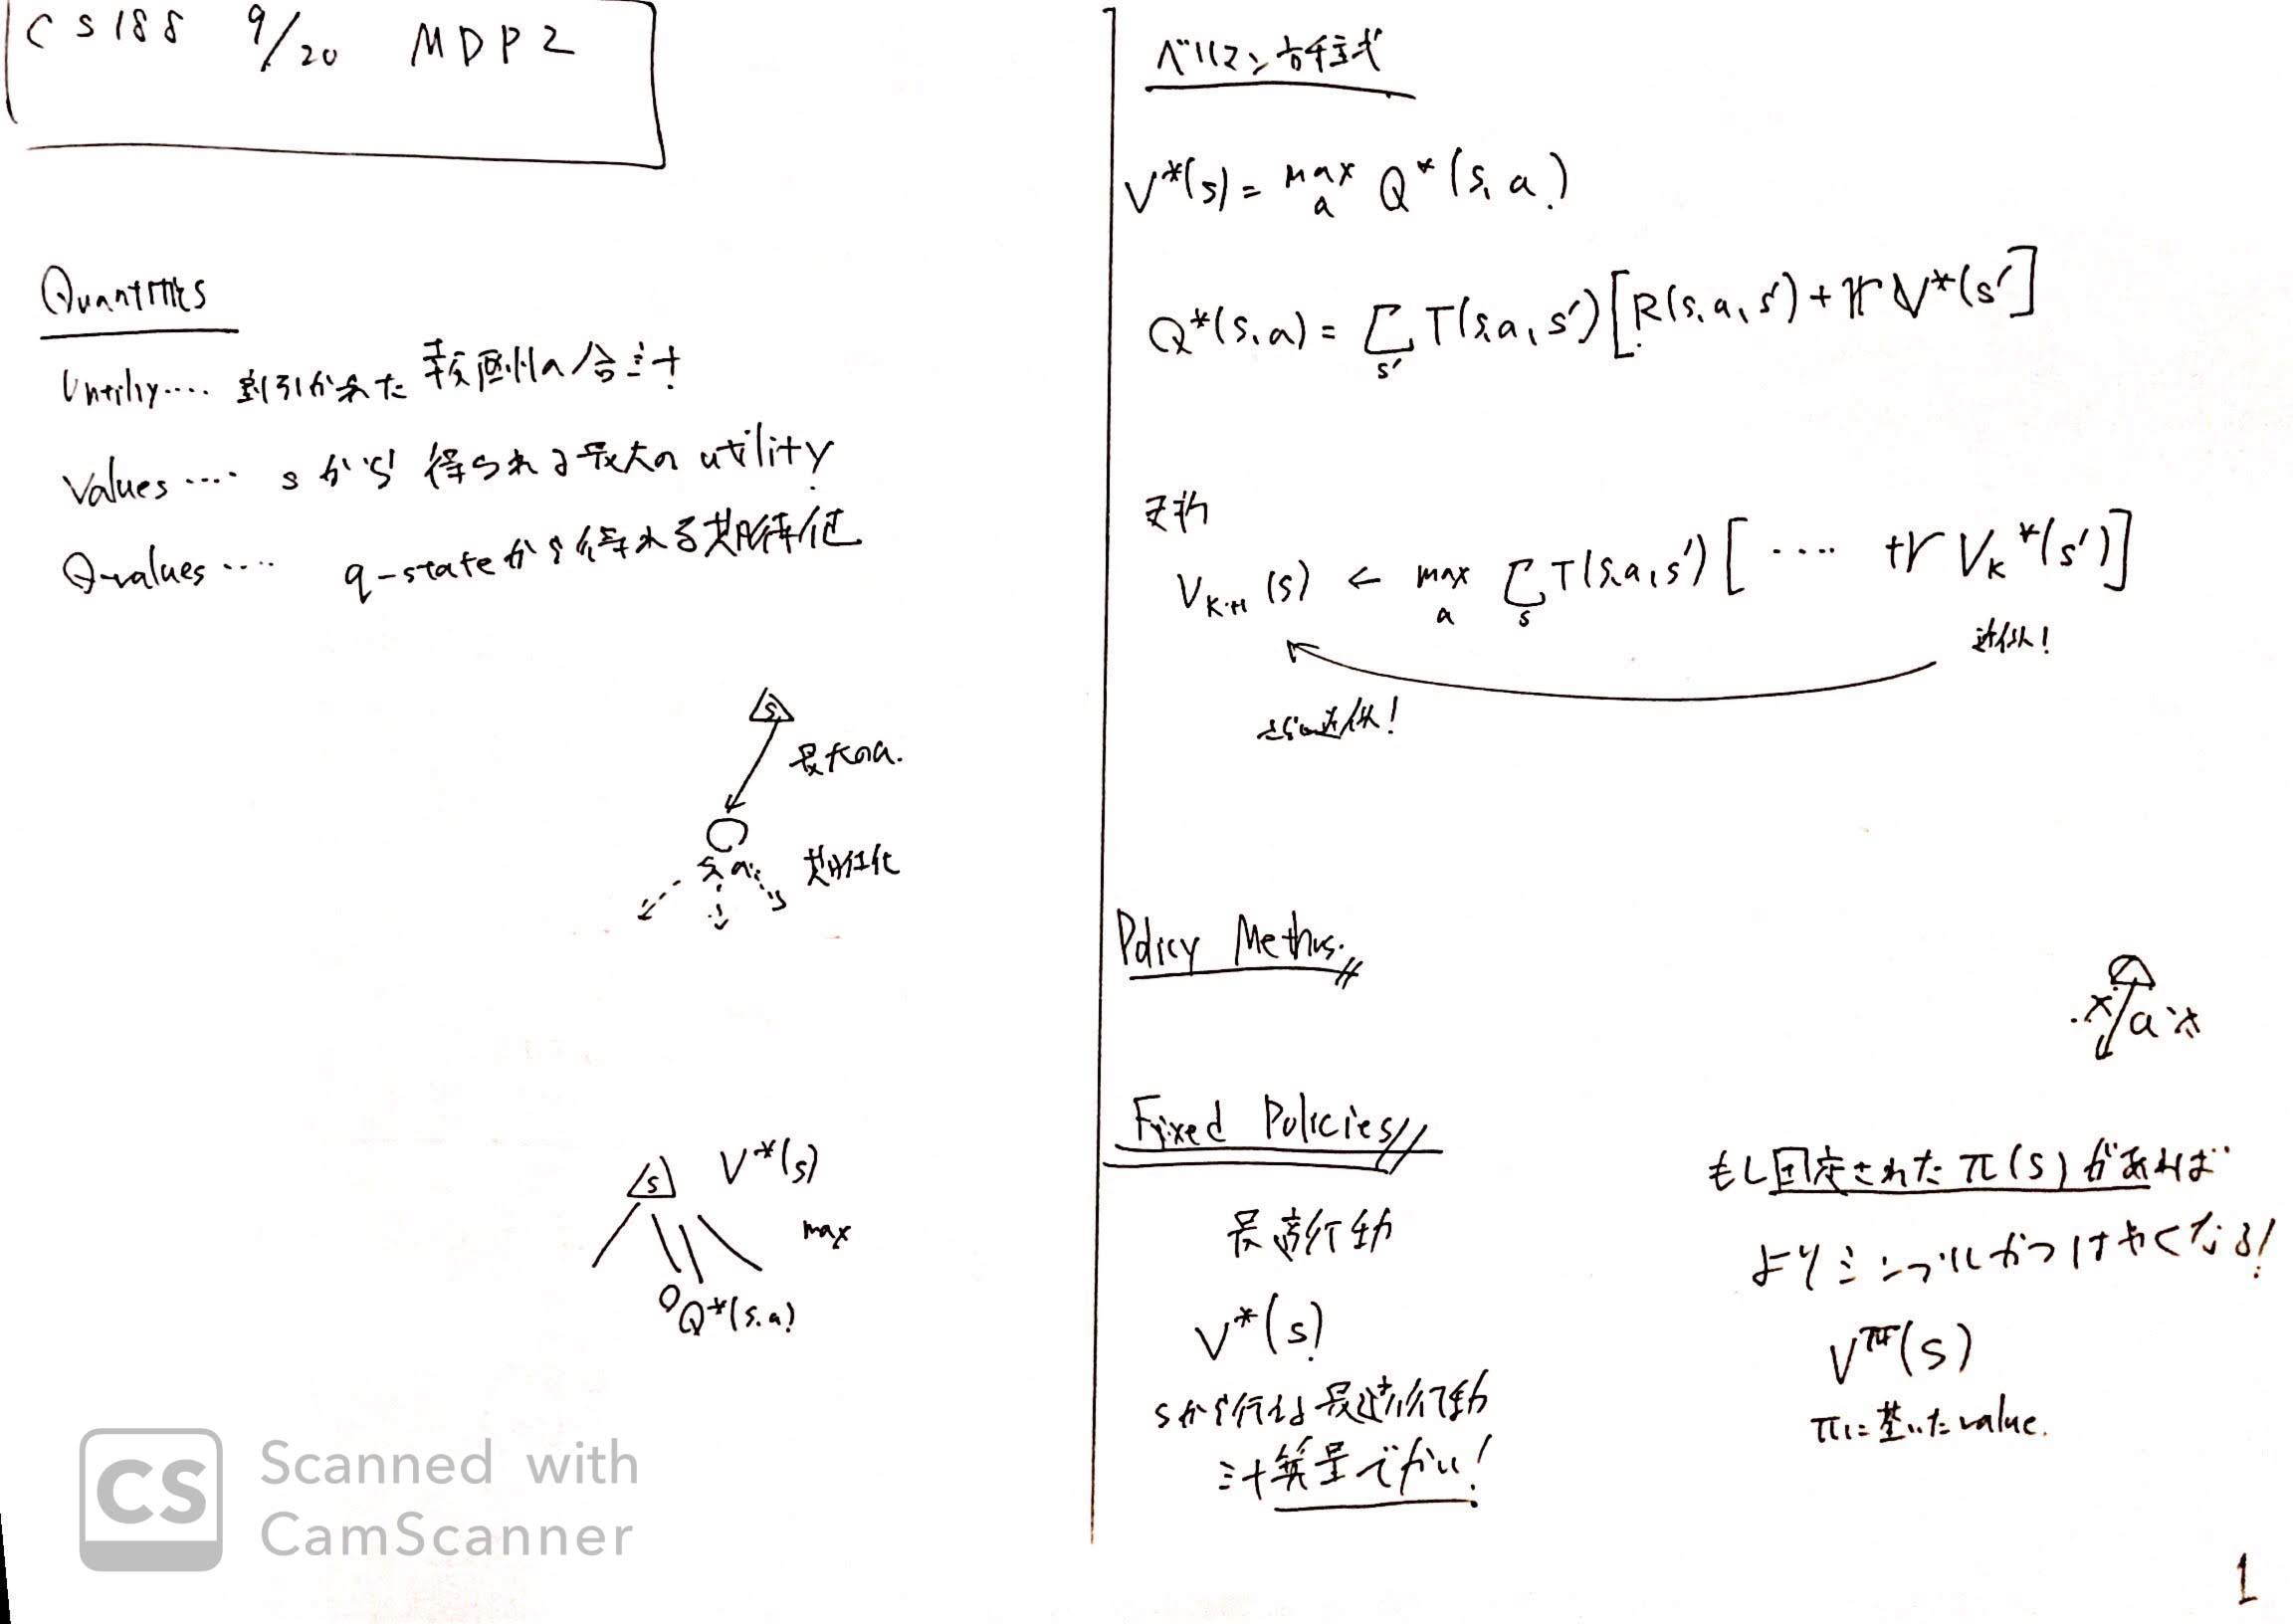 CS188 9/20 MDP2
Quantities
Untiliy.... 割引かれた 報酬の合計
Values .... sから 得られる最大の utility
Q-values .... q-stateから得れる期待値
s
最大のa.
s, a
期待値
s
V*(s)
max
Q*(s,a)
ベルマン方程式
V*(s) = max_a Q*(s, a)
Q*(s,a) = Σ_s' T(s,a,s') [R(s,a,s') + γ V*(s')]
更新
V_k+1 (s) ← max_a Σ_s T(s,a,s') [ .... + γ V_k*(s')]
近似!
さらに近似!
Policy Methos
a
Fixed Policies
最適行動
V*(s)
sから行なう最適行動
計算量でかい!
もし固定された π(s) があれば
よりシンプルかつはやくなる!
V^π(s)
πに基いた value.
CS Scanned with
CamScanner
1